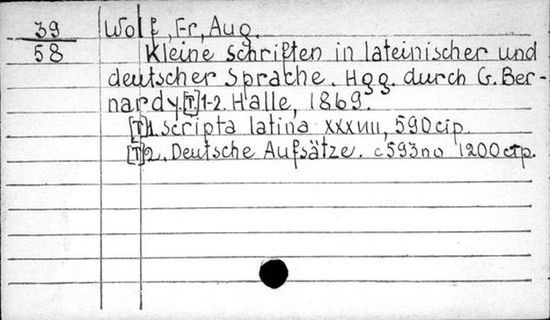 39 Wolf, Fr, Aug.
58 Kleine Schriften in lateinischer und
deutscher Sprache. Hgg. durch G. Ber-
nardy. [T] 1-2. Halle, 1869.
[T] 1. Scripta latina XXXVIII, 590 стр.
[T] 2. Deutsche Aufsätze. с 593 по 1200 стр.